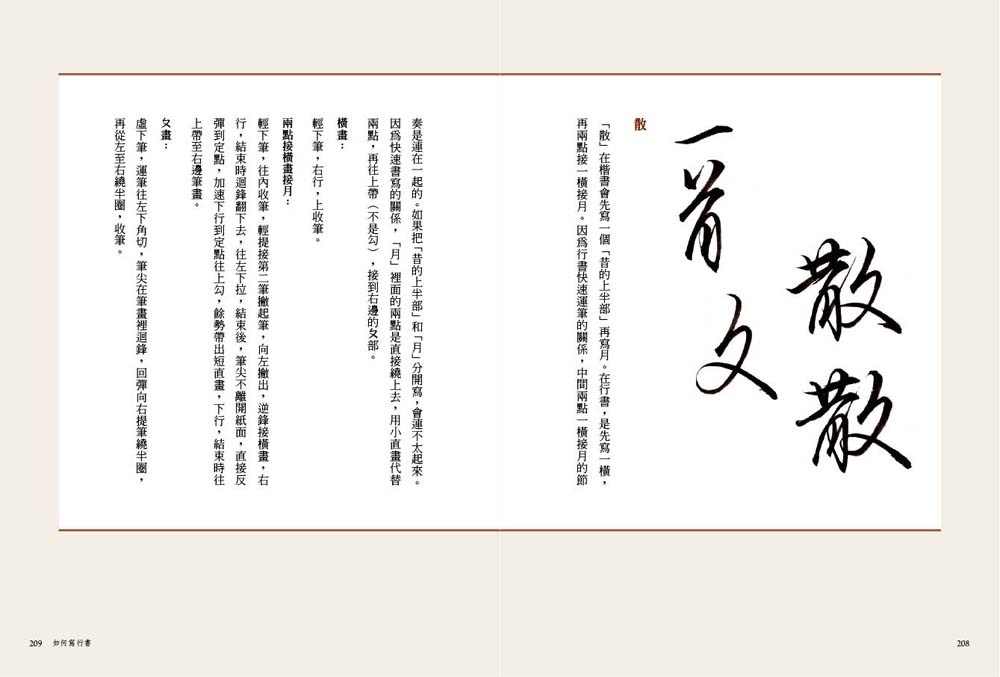 散
散
一
首
攵
散
「散」在楷書會先寫一個「昔的上半部」再寫月。在行書，是先寫一橫，
再兩點接一橫接月。因為行書快速運筆的關係，中間兩點一橫接月的節
奏是連在一起的。如果把「昔的上半部」和「月」分開寫，會連不太起來。
因為快速書寫的關係，「月」裡面的兩點是直接繞上去，用小直畫代替
兩點，再往上帶（不是勾），接到右邊的攵部。
橫畫：
輕下筆，右行，上收筆。
兩點接橫畫接月：
輕下筆，往內收筆，輕提接第二筆撇起筆，向左撇出，逆鋒接橫畫，右
行，結束時迴鋒翻下去，往左下拉，結束後，筆尖不離開紙面，直接反
彈到定點，加速下行到定點往上勾，餘勢帶出短直畫，下行，結束時往
上帶至右邊筆畫。
攵畫：
虛下筆，運筆往左下角切，筆尖在筆畫裡迴鋒，回彈向右提筆繞半圈，
再從左至右繞半圈，收筆。
209 如何寫行書
208